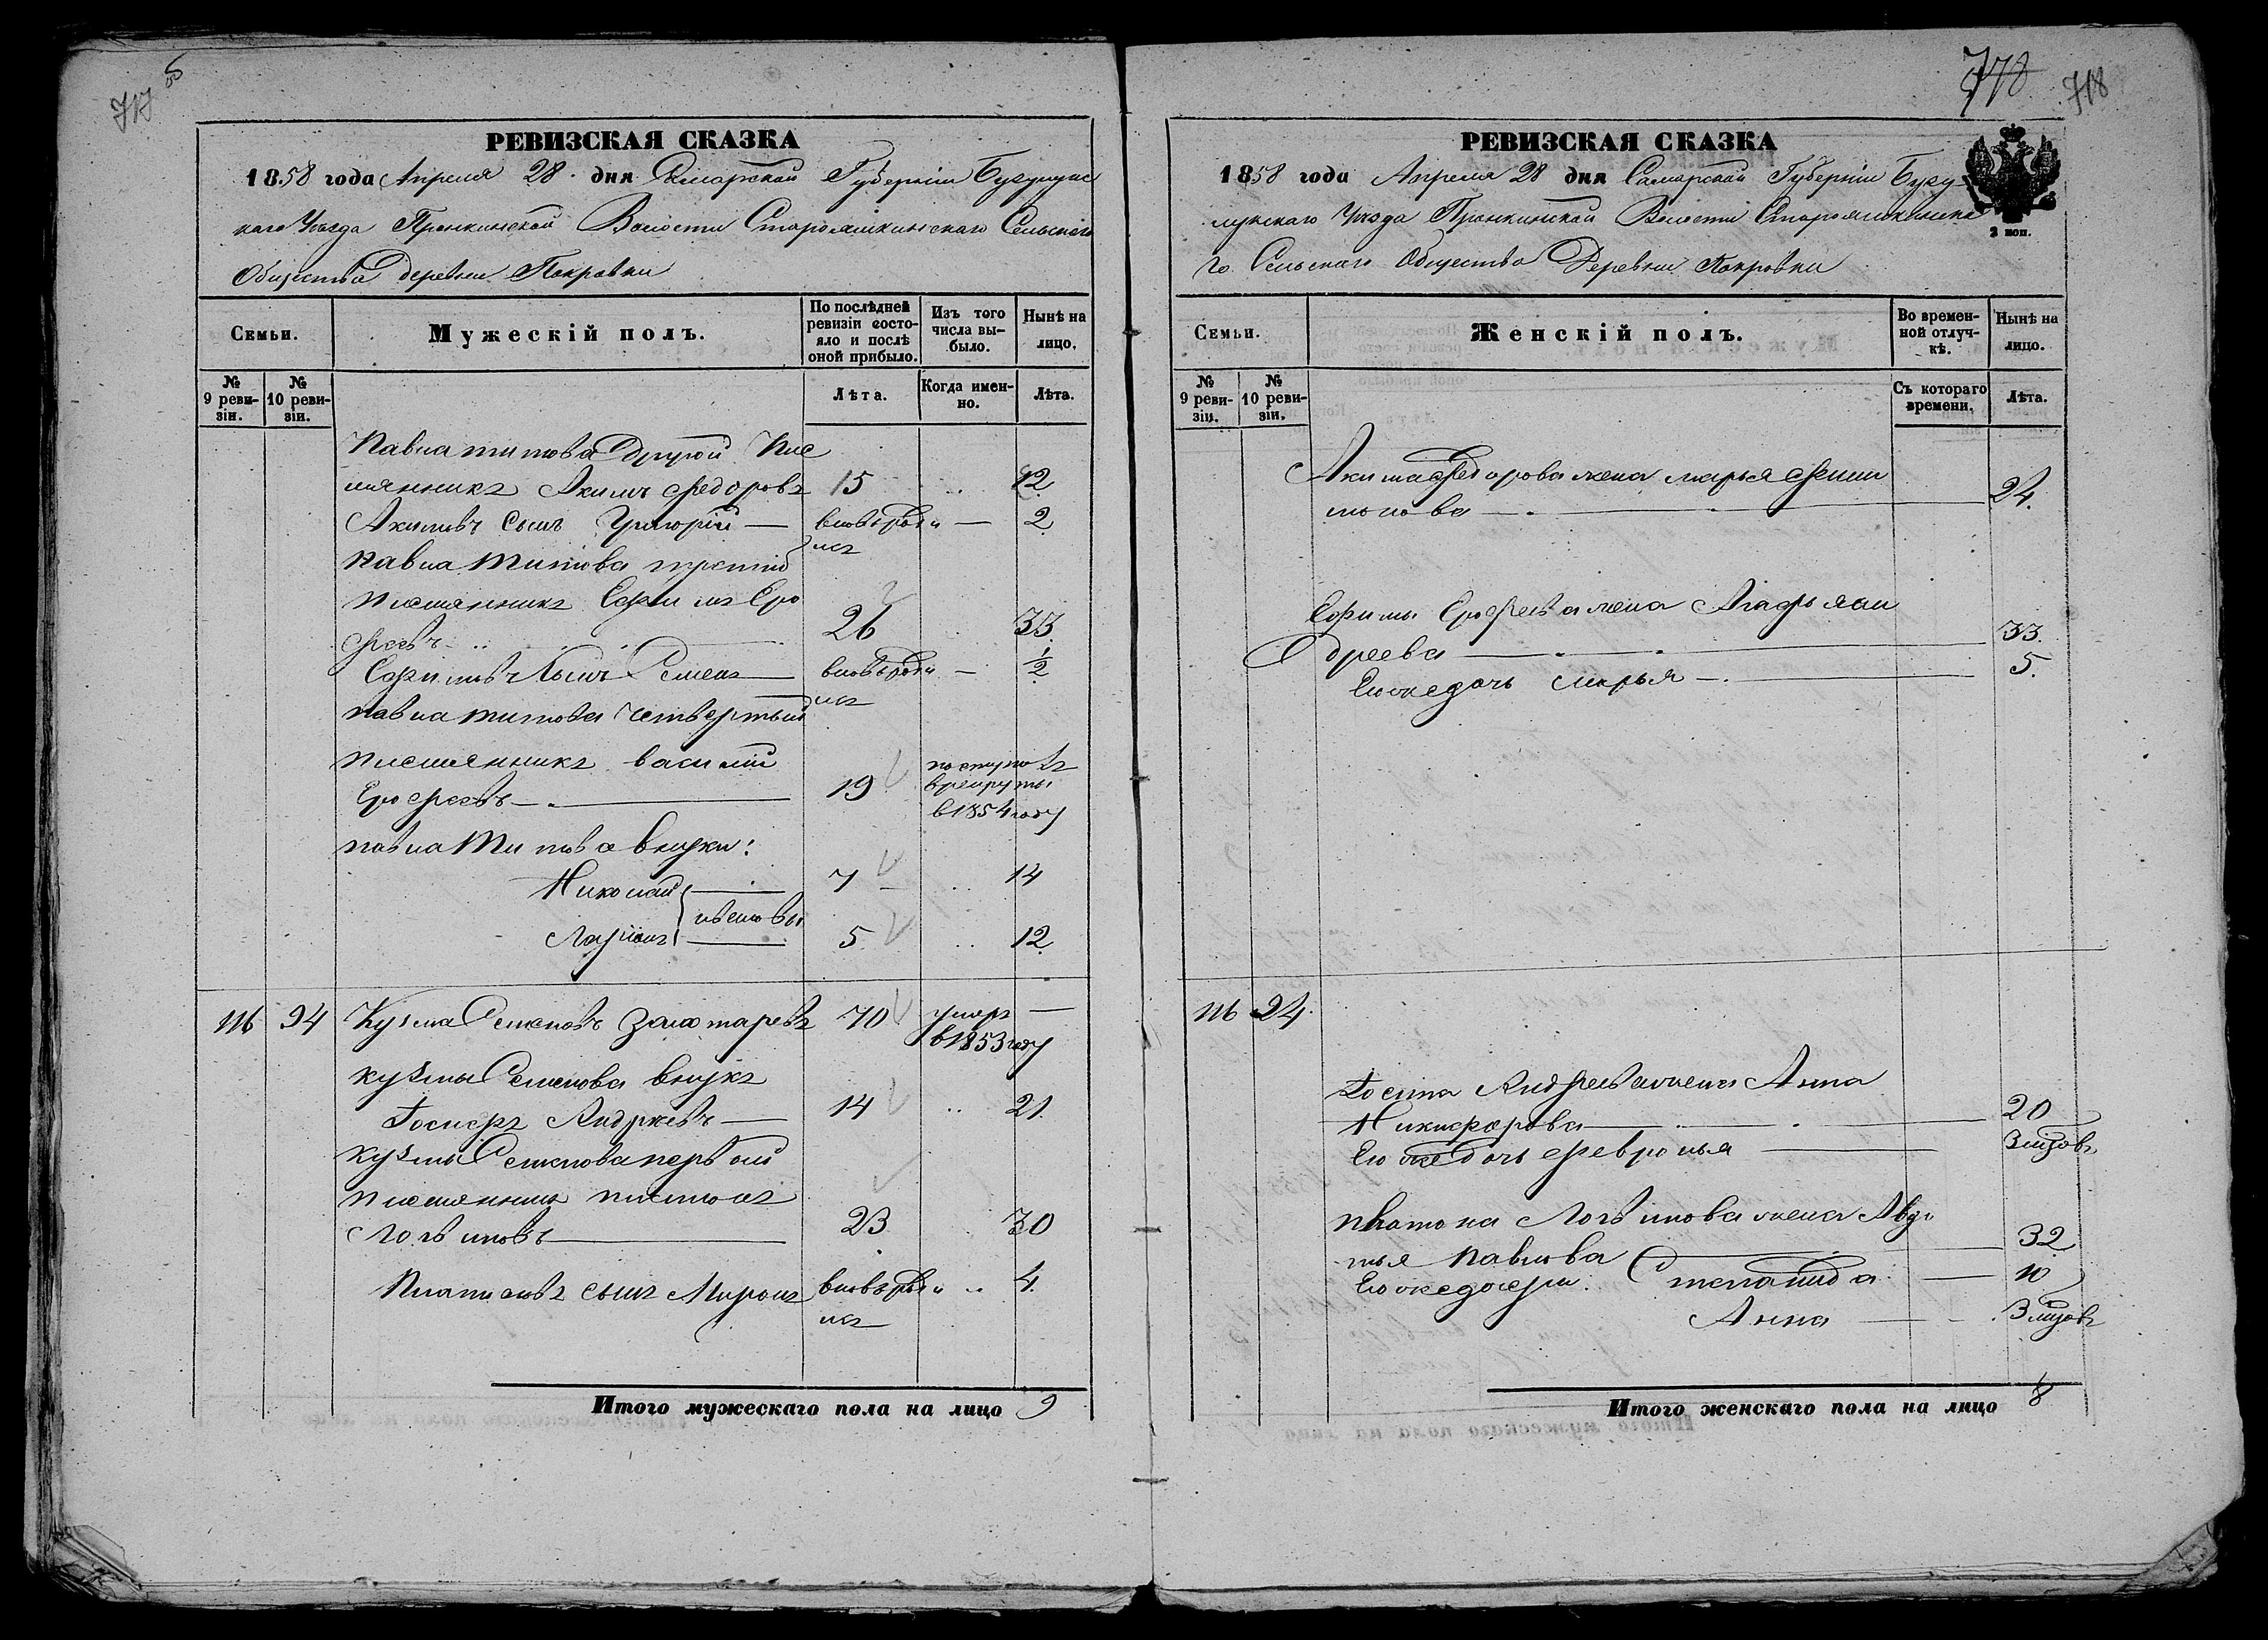 717 об
РЕВИЗСКАЯ СКАЗКА
1858 года Апреля 28 дня Самарской Губерніи Бузулукс
каго Уѣзда Пронкинской Волости Старояшкинскаго Сельскаго
Общества деревни Покровки
Семьи.
Мужескій полъ.
По послѣдней ревизіи состояло и послѣ оной прибыло.
Изъ того числа выбыло.
Нынѣ на лицо.
№ 9 ревизіи.
№ 10 ревизіи.
Лѣта.
Когда именно.
Лѣта.
Павла титова Другой пле
мянникъ Акимъ Федоровъ 15 22
Акимовъ Сынъ Григорій вновь роди 2
лся
Павла Титова третій
племянникъ Ефимъ Еро
феевъ 26 33
Ефимовъ Сынъ Семенъ вновь роди 1/2
лся
павла титова четвертый
племянникъ василій
Ерофеевъ 19 поступилъ в рекруты в 1854 году
павла Титова внуки:
Николай 7 14
ивановы
Ларіонъ 5 12
116 94 Кузма Семеновъ Золотаревъ 70 умеръ в 1853 году
кузмы Семенова внукъ
Іосифъ Андреевъ 14 21
кузмы Семенова первой
племянникъ платонъ
Логвиновъ 23 30
Платоновъ сынъ Миронъ вновь роди 4
лся
Итого мужескаго пола на лицо 9
778 718
РЕВИЗСКАЯ СКАЗКА
1858 года Апреля 28 дня Самарской Губерніи Бузу
лукскаго Уѣзда Пронкинской Волости Старояшкинска
го Сельскаго Общества Деревни Покровки
2 коп.
Семьи.
Женскій полъ.
Во временной отлучкѣ.
Нынѣ на лицо.
№ 9 ревизіи.
№ 10 ревизіи.
Съ котораго времени.
Лѣта.
Акима Федорова жена марья
24
Ефима Ерофеева жена
дреева 33
Его же дочь Марья 5
116 94
Іосифа Андреева жена Анна
Никифорова 20
Его же дочь Февронья 3 мѣсцовъ
платона Логвинова жена Авдо
тья Павлова 32
Его же дочери: Степанида 10
Анна 3 мѣсцовъ
Итого женскаго пола на лицо 8